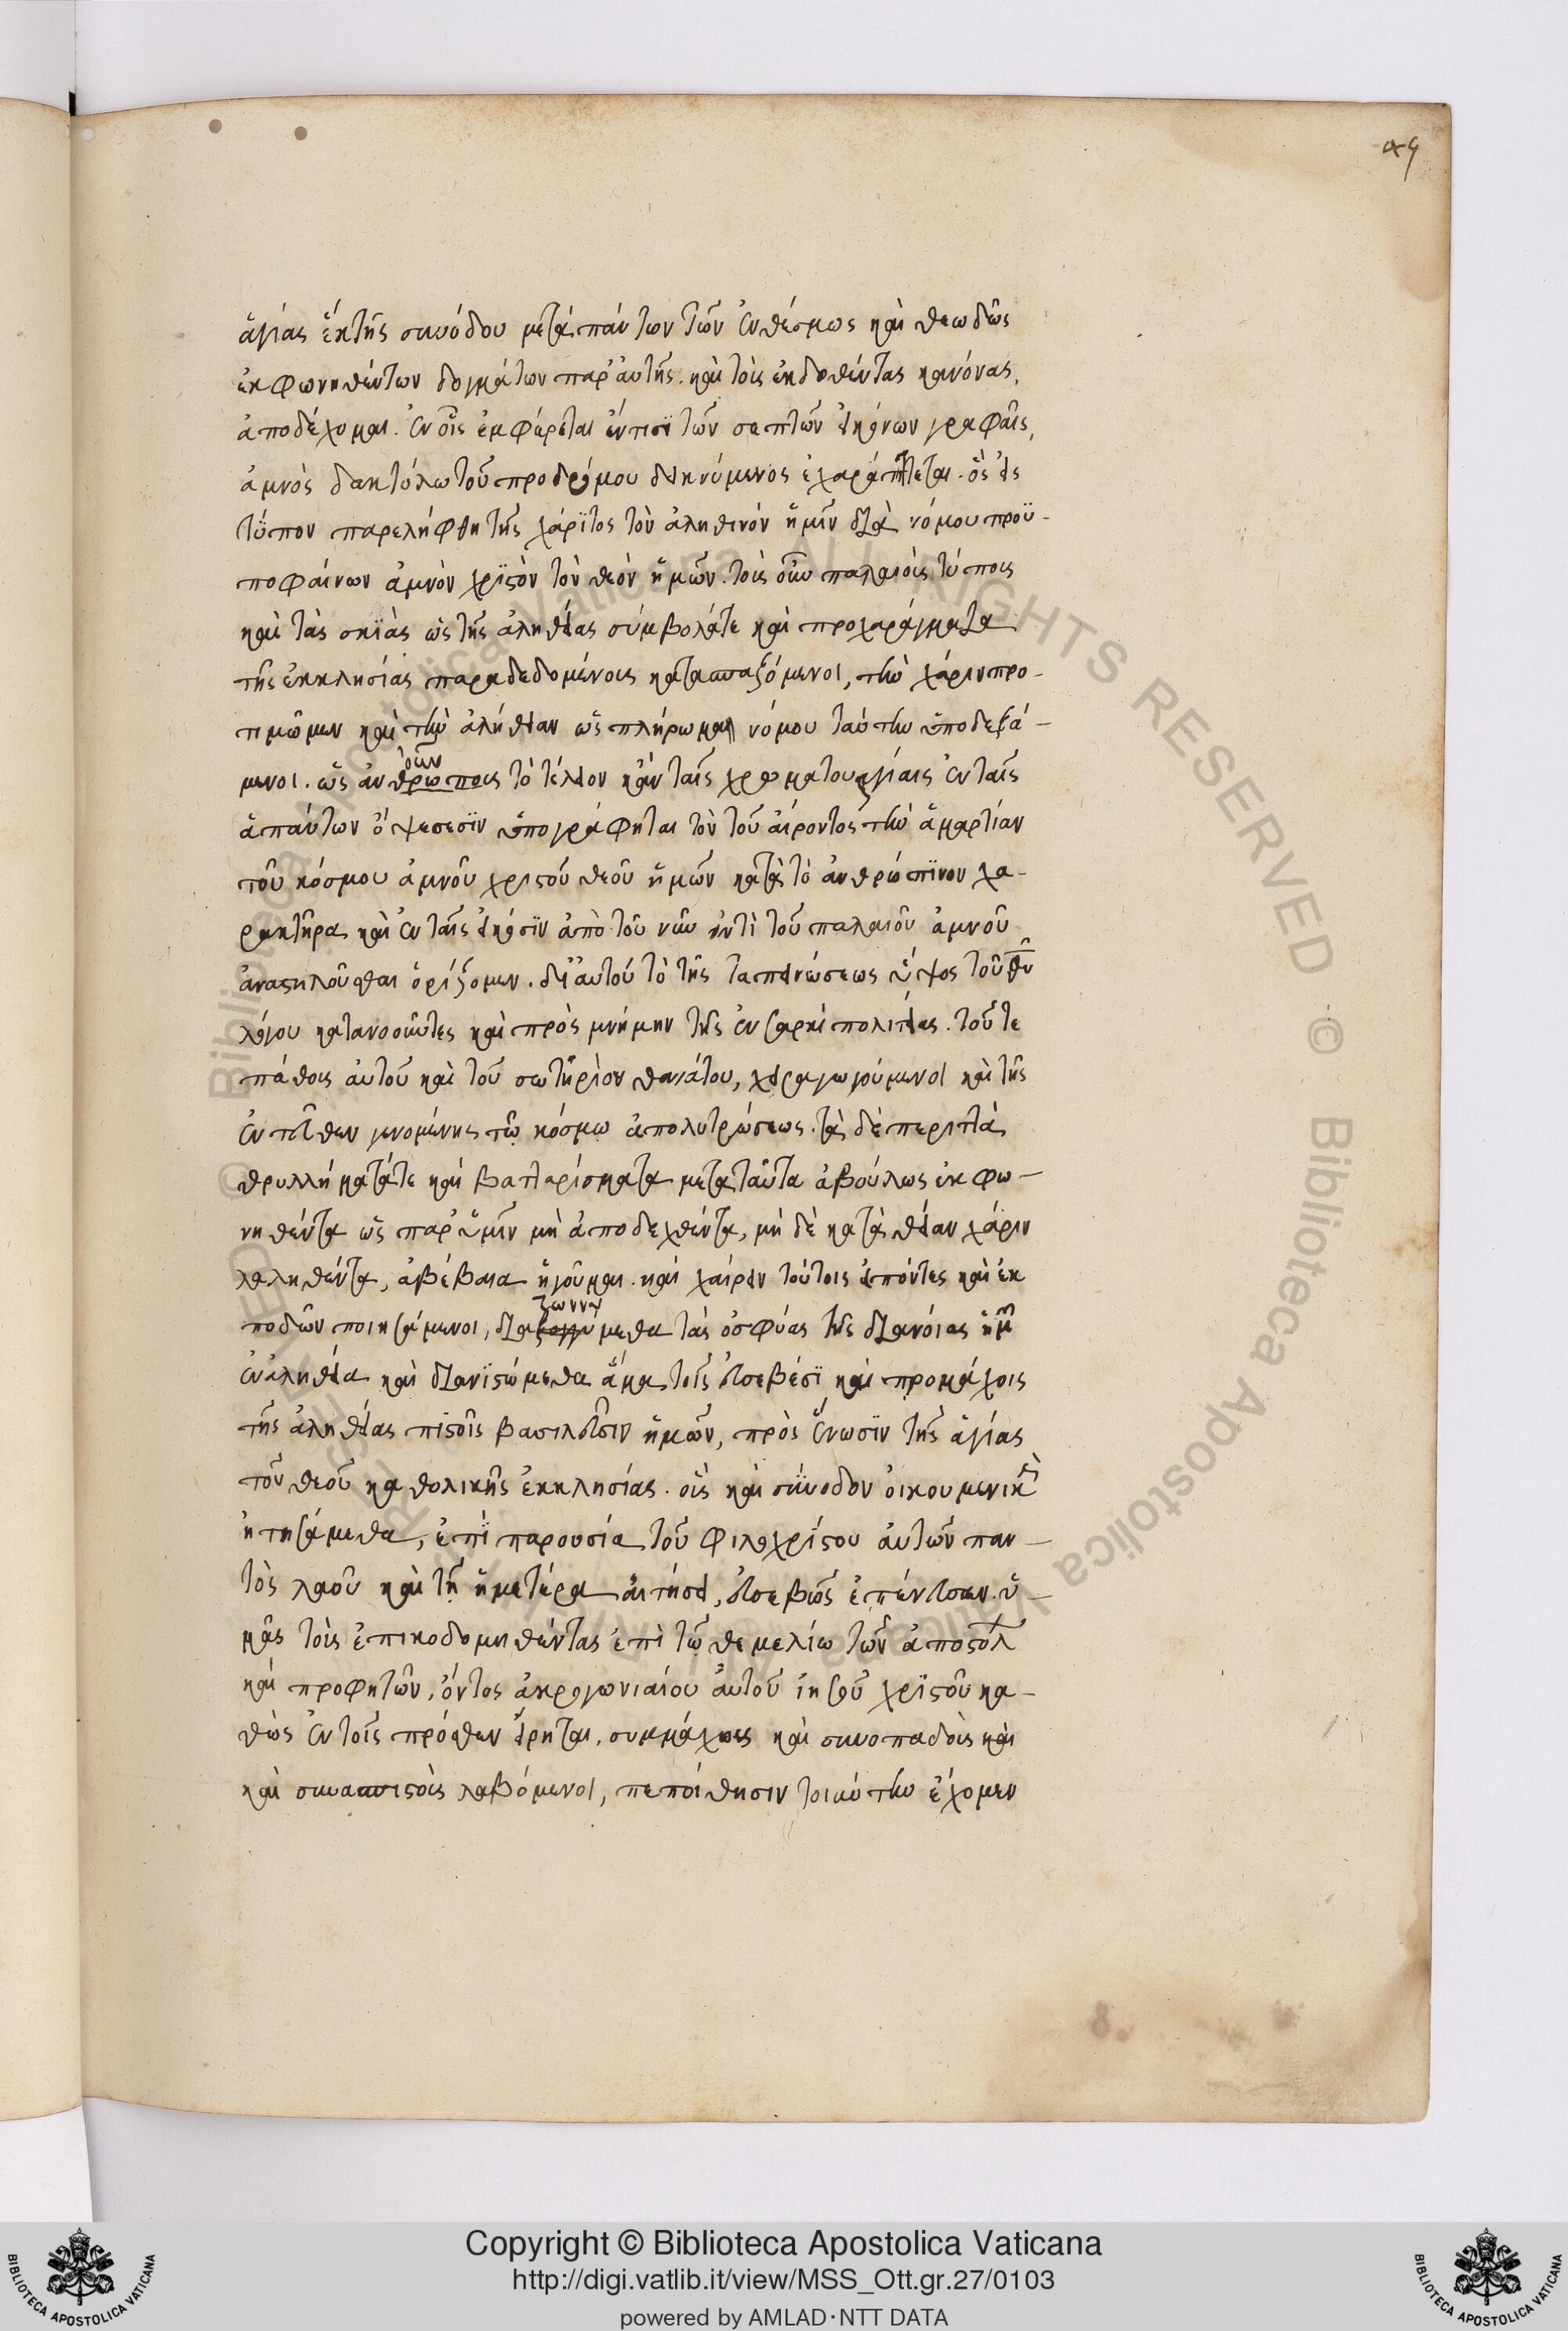 αγ
ἁγίας ἕκτης συνόδου μετὰ πάντων τῶν ἐνθέσμως καὶ θεωδῶς
ἐκφωνηθέντων δογμάτων παρ' αὐτῆς. καὶ τοὺς ἐκδοθέντας κανόνας,
ἀποδέχομαι. ἐν οἷς ἐμφέρεται ἔν τισι τῶν σεπτῶν εἰκόνων γραφαῖς,
ἀμνὸς δακτύλω τοῦ προδρόμου δεικνύμενος ἐχαράττεται. ὃς εἰς
τύπον παρελήφθη τῆς χάριτος τὸν ἀληθινὸν ἡμῖν διὰ νόμου προϋ-
ποφαίνων ἀμνὸν χριστὸν τὸν θεὸν ἡμῶν. τοὺς οὖν παλαιοὺς τύπους
καὶ τὰς σκιὰς ὡς τῆς ἀληθείας σύμβολά τε καὶ προχαράγματα
τῆς ἐκκλησίας παραδεδομένους κατασπαζόμενοι, τὴν χάριν προ-
τιμῶμεν καὶ τὴν ἀλήθειαν ὡς πλήρωμα νόμου ταύτην ὑποδεξά-
μενοι. ὡς ἀν οὖν θρώποις τὸ τέλειον κἀν ταῖς χρωματουργίαις ἐν ταῖς
ἁπάντων ὄψεσεσιν ὑπογράφηται τὸν τοῦ αἴροντος τὴν ἁμαρτίαν
τοῦ κόσμου ἀμνοῦ χριστοῦ θεοῦ ἡμῶν κατὰ τὸ ἀνθρώπινον χα-
ρακτῆρα καὶ ἐν ταῖς εἰκόσιν ἀπὸ τοῦ νῦν ἀντὶ τοῦ παλαιοῦ ἀμνοῦ
ἀναστηλοῦσθαι ὁρίζομεν. δι' αὐτοῦ τὸ τῆς ταπεινώσεως ὕψος τοῦ θυ
λόγου κατανοοῦντες καὶ πρὸς μνήμην τῆς ἐν σαρκὶ πολιτείας. τοῦ τε
πάθους αὐτοῦ καὶ τοῦ σωτηρίου θανάτου, χειραγωγούμενοι καὶ τῆς
ἐντεῦθεν γενομένης τῷ κόσμω ἀπολυτρώσεως. τὰ δὲ περιττὰ
θρυλλήματά τε καὶ βατταρίσματα μετὰ ταῦτα ἀβούλως ἐκφω-
νηθέντα ὡς παρ' ὑμῖν μὴ ἀποδεχθέντα, μὴ δὲ κατὰ θείαν χάριν
λαληθέντα, ἀβέβαια ἡγοῦμαι. καὶ χαίρειν τούτοις εἰπόντες καὶ ἐκ
ποδῶν ποιησάμενοι, δια ζωννύ μεθα τὰς ὀσφύας τῆς διανοίας ἡμ
ἐν ἀληθεία καὶ διανιστώμεθα ἅμα τοῖς εὐσεβέσι καὶ προμάχοις
τῆς ἀληθείας πιστοῖς βασιλεῦσιν ἡμῶν, πρὸς ἕνωσιν τῆς ἁγίας
τοῦ θεοῦ καθολικῆς ἐκκλησίας. οὓς καὶ σύνοδον οἰκουμενικὴ
ἠτησάμεθα, ἐπὶ παρουσία τοῦ φιλοχρίστου αὐτῶν παν-
τὸς λαοῦ καὶ τῇ ἡμετέρα αἰτήσει, εὐσεβῶς ἐπένευσαν. ὑ-
μᾶς τοὺς ἐπικοδομηθέντας ἐπὶ τῷ θεμελίω τῶν ἀποστόλ
καὶ προφητῶν, ὄντος ἀκρογωνιαίου αὐτοῦ ἰησοῦ χριστοῦ κα-
θὼς ἐν τοῖς πρόσθεν εἴρηται, συμμάχους καὶ συνοπαδοὺς καὶ
καὶ συνασπιστὰς λαβόμενοι, πεποίθησιν τοιαύτην ἔχομεν
Copyright © Biblioteca Apostolica Vaticana
http://digi.vatlib.it/view/MSS_Ott.gr.27/0103
powered by AMLAD·NTT DATA